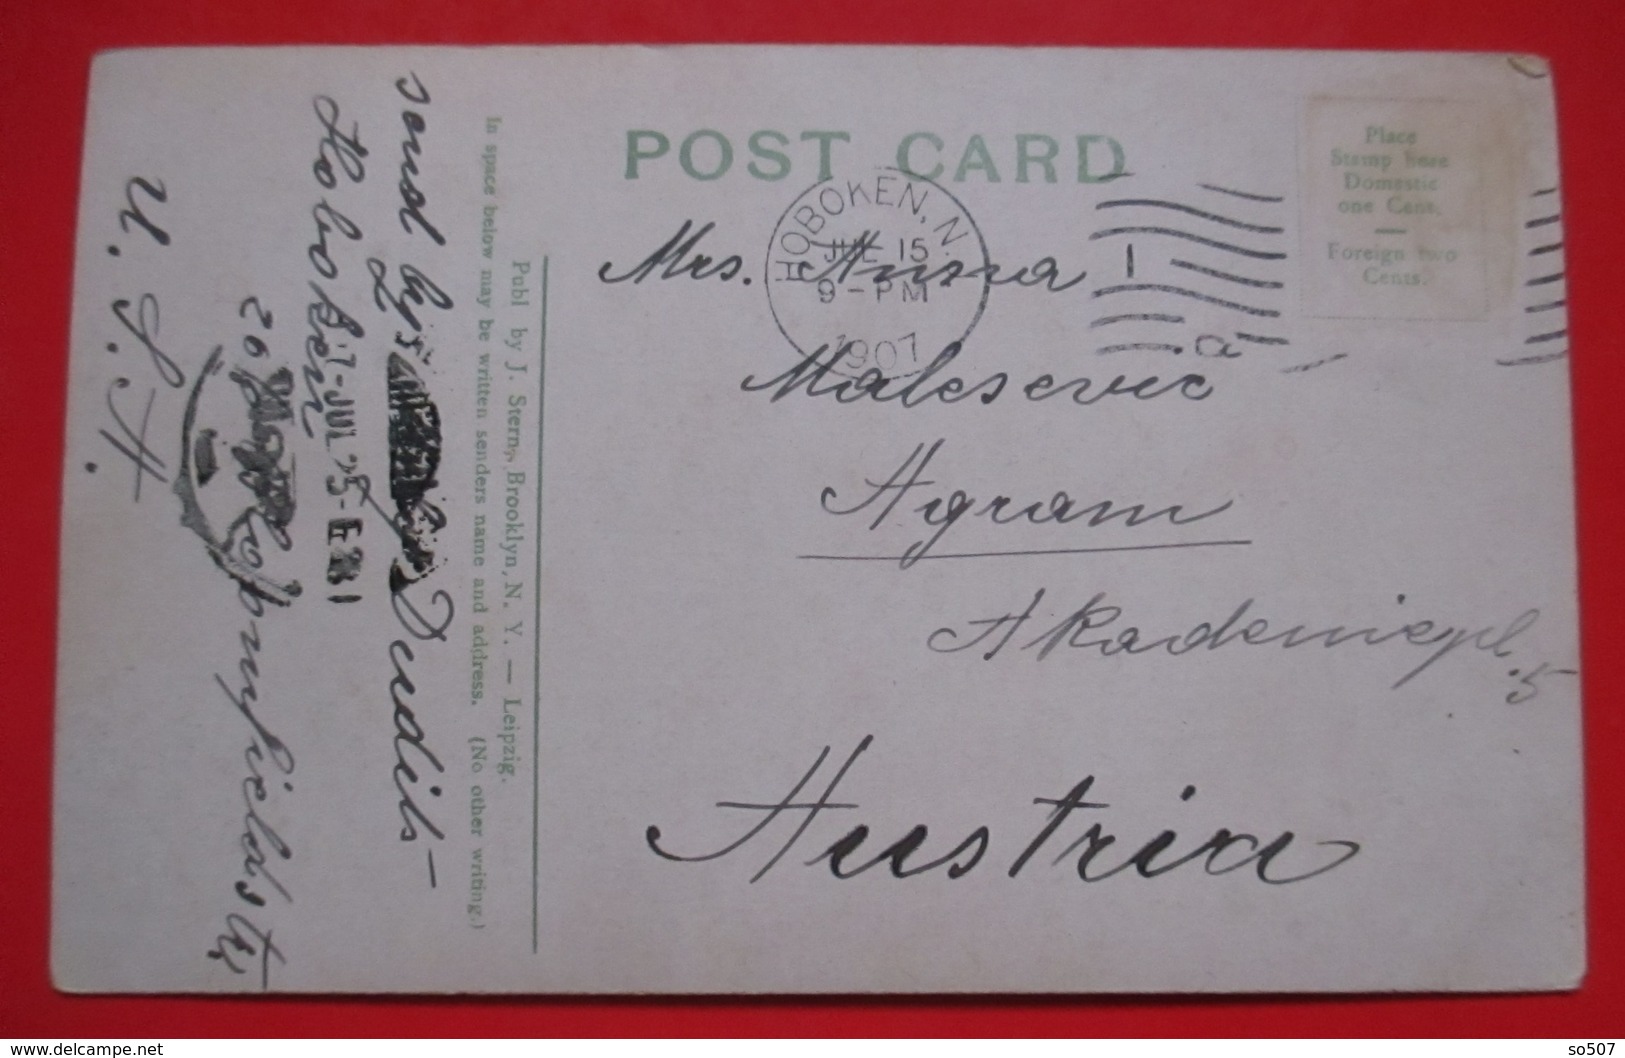 POST CARD
Place
Stamp here
Domestic
one Cent.
—
Foreign two
Cents.
HOBOKEN, N.
JUL 15
9-PM
1907
1
a
Mrs. Anna
Malesevic
Agram
Akademiepl. 5
Austria
Publ by J. Stern, Brooklyn, N. Y. — Leipzig.
In space below may be written senders name and address. (No other writing.)
send by
Hoboken
JUL 25
U. S. A.
www.delcampe.net
so507